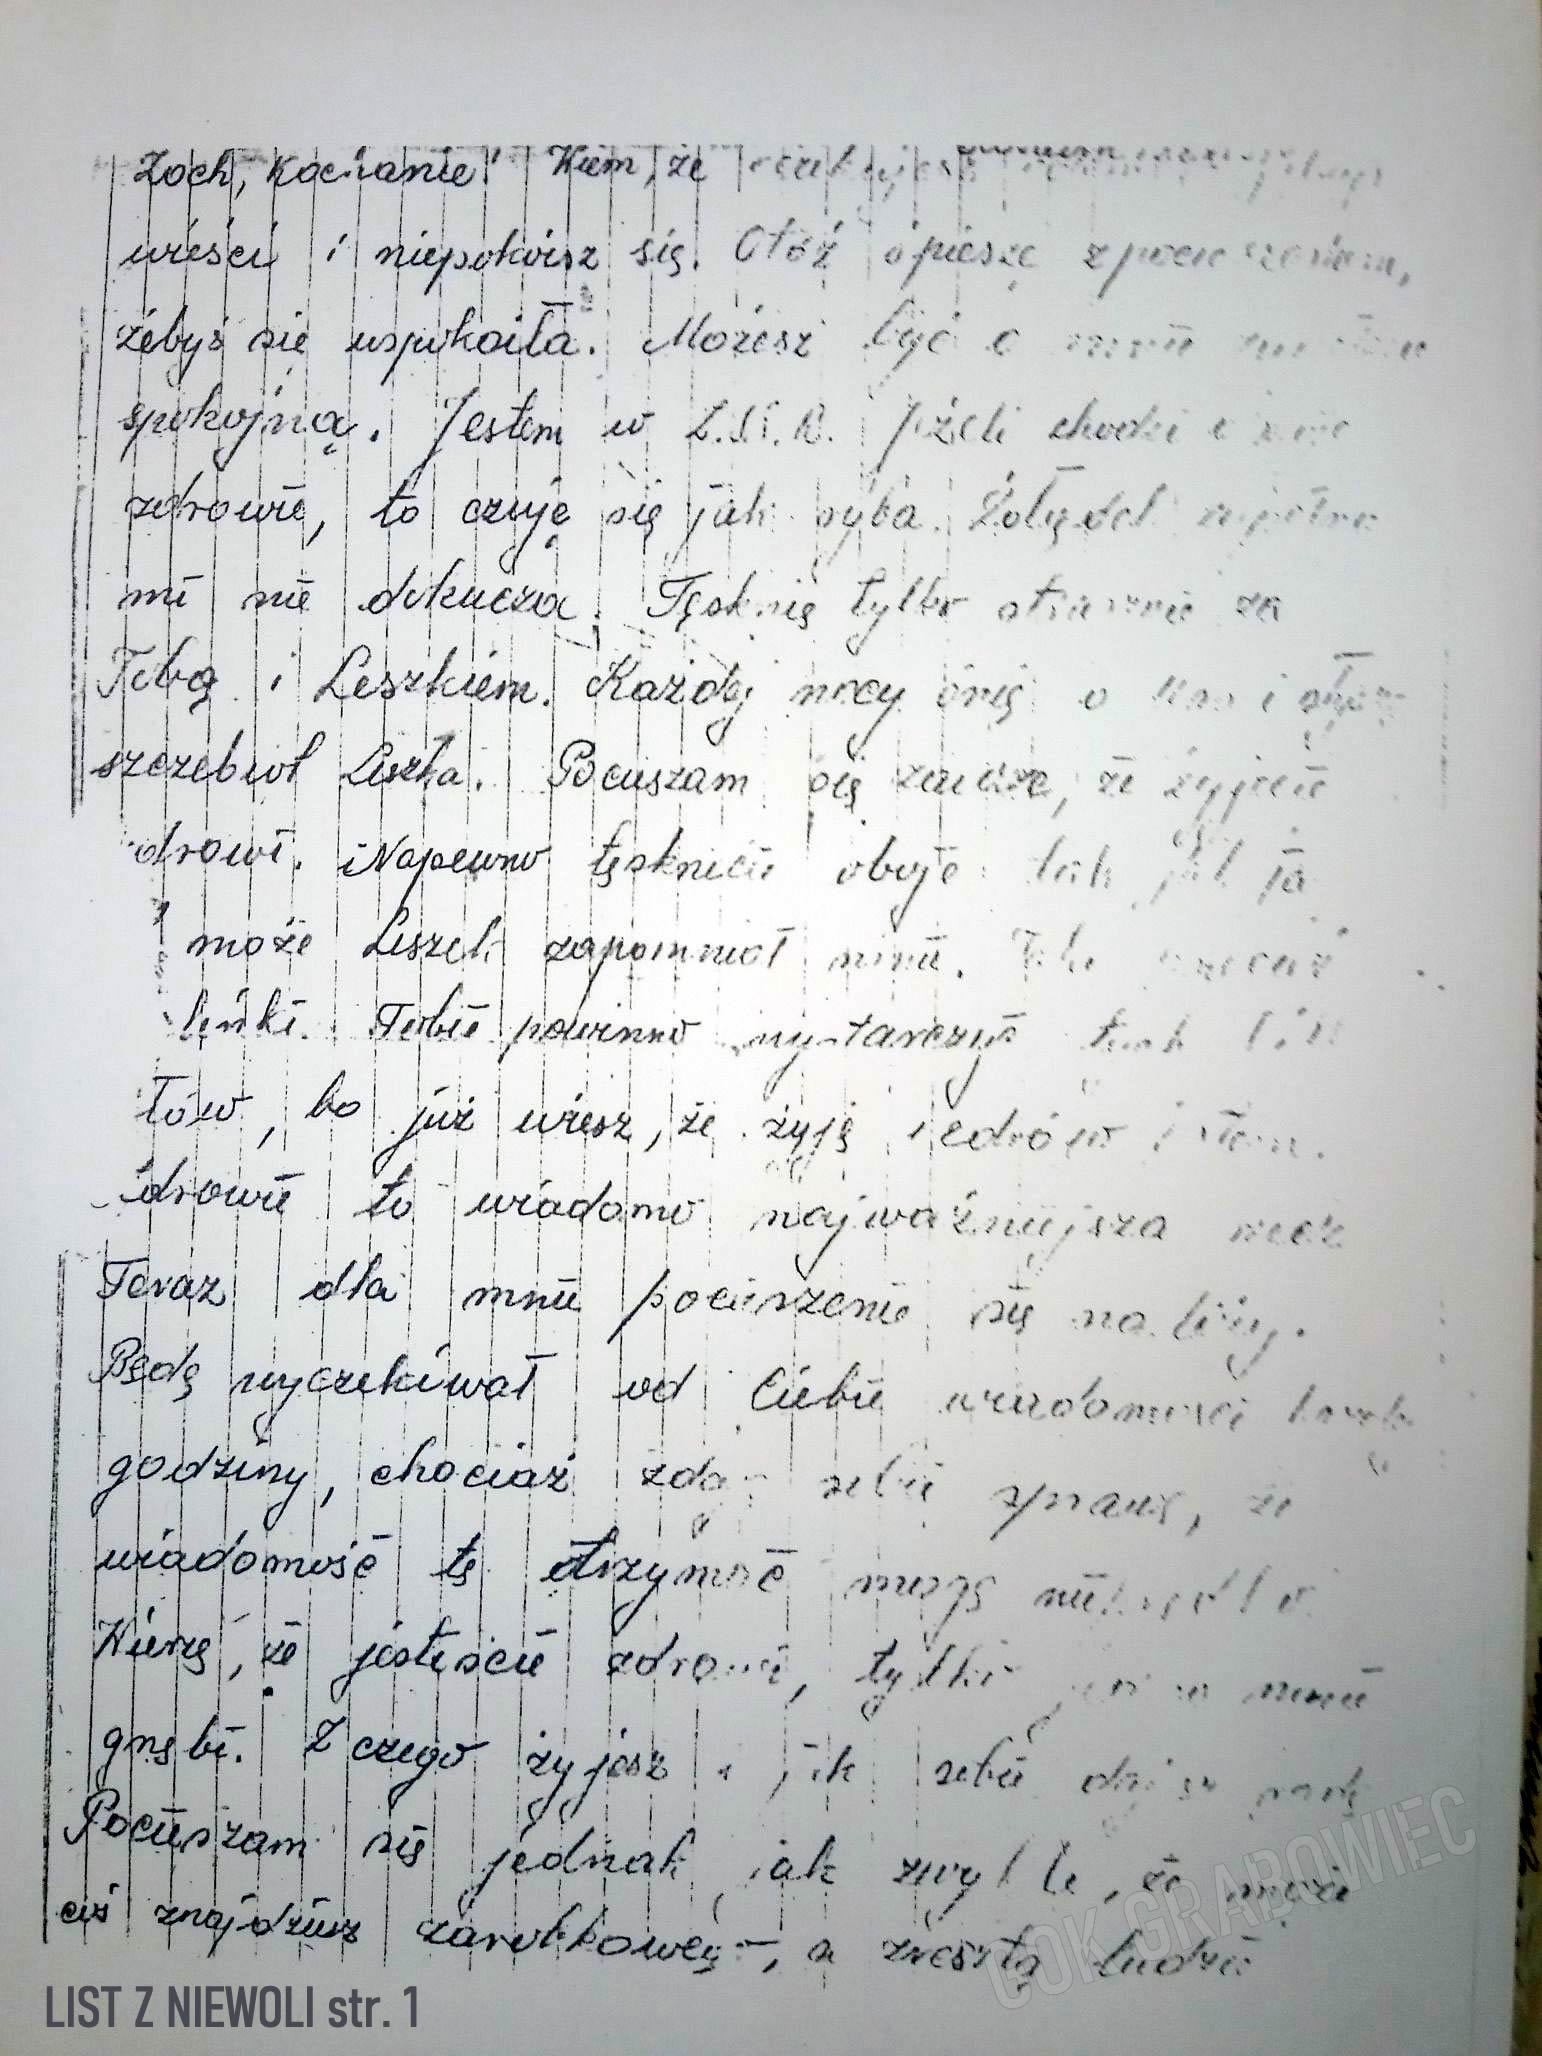 Zoch, Kochanie! Wiem, że oczekujesz
wieści i niepokoisz się. Otóż śpieszę z pocieszeniem,
żebyś się uspokoiła. Możesz być o mnie
spokojną. Jestem w Z.S.R. Jeżeli chodzi o moje
zdrowie, to czuję się jak ryba. Żołądek zupełnie
mi nie dokucza. Tęsknię tylko strasznie za
Tobą i Leszkiem. Każdej nocy śnię o Was i słyszę
szczebiot Leszka. Pocieszam się zawsze, że żyjecie
zdrowi. Napewno tęsknicie oboje tak jak ja
może Leszek zapomniał mnie.
leńki. Tobie powinno wystarczyć tych
łów, bo już wiesz, że żyję i zdrów jestem.
zdrowie to wiadomo najważniejsza rzecz
Teraz dla mnie pocieszenie się należy.
Będę wyczekiwał od Ciebie wiadomości każdej
godziny, chociaż zdaję sobie sprawę, że
wiadomość tę otrzymać mogę nieprędko.
Wierzę, że jesteście zdrowi, tylko jedno mnie
gnębi. Z czego żyjesz i jak sobie dajesz radę
Pocieszam się jednak, jak zwykle, że może
coś znajdziesz zarobkowego, a zresztą ludzie
LIST Z NIEWOLI str. 1
GOK GRABOWIEC